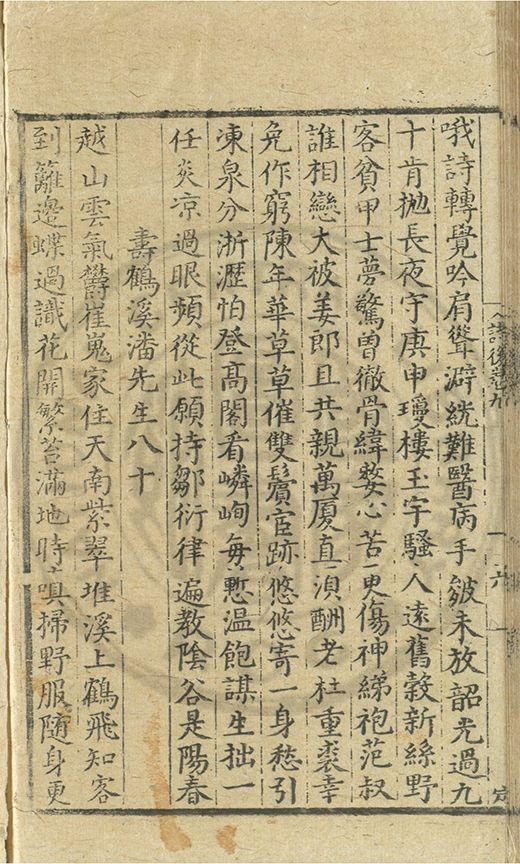 哦詩轉覺吟肩聳澼絖難醫病手皴未放韶光過九
十肯拋長夜守庚申瓊樓玉宇騷人遠舊穀新絲野
客貧甲士夢驚曾徹骨緯嫠心苦更傷神綈袍范叔
誰相戀大被姜郎且共親萬厦直須酬老杜重裘幸
免作窮陳年華草草催雙鬢宦跡悠悠寄一身愁引
凍泉分浙瀝怕登髙閣看嶙峋每慙温飽謀生拙一
任炎凉過眼頻從此願持鄒衍律遍教陰谷是陽春
壽鶴溪潘先生八十
越山雲氣欝崔嵬家住天南紫翠堆溪上鶴飛知客
到籬邊蝶過識花開繁苔滿地時嗔掃野服随身更